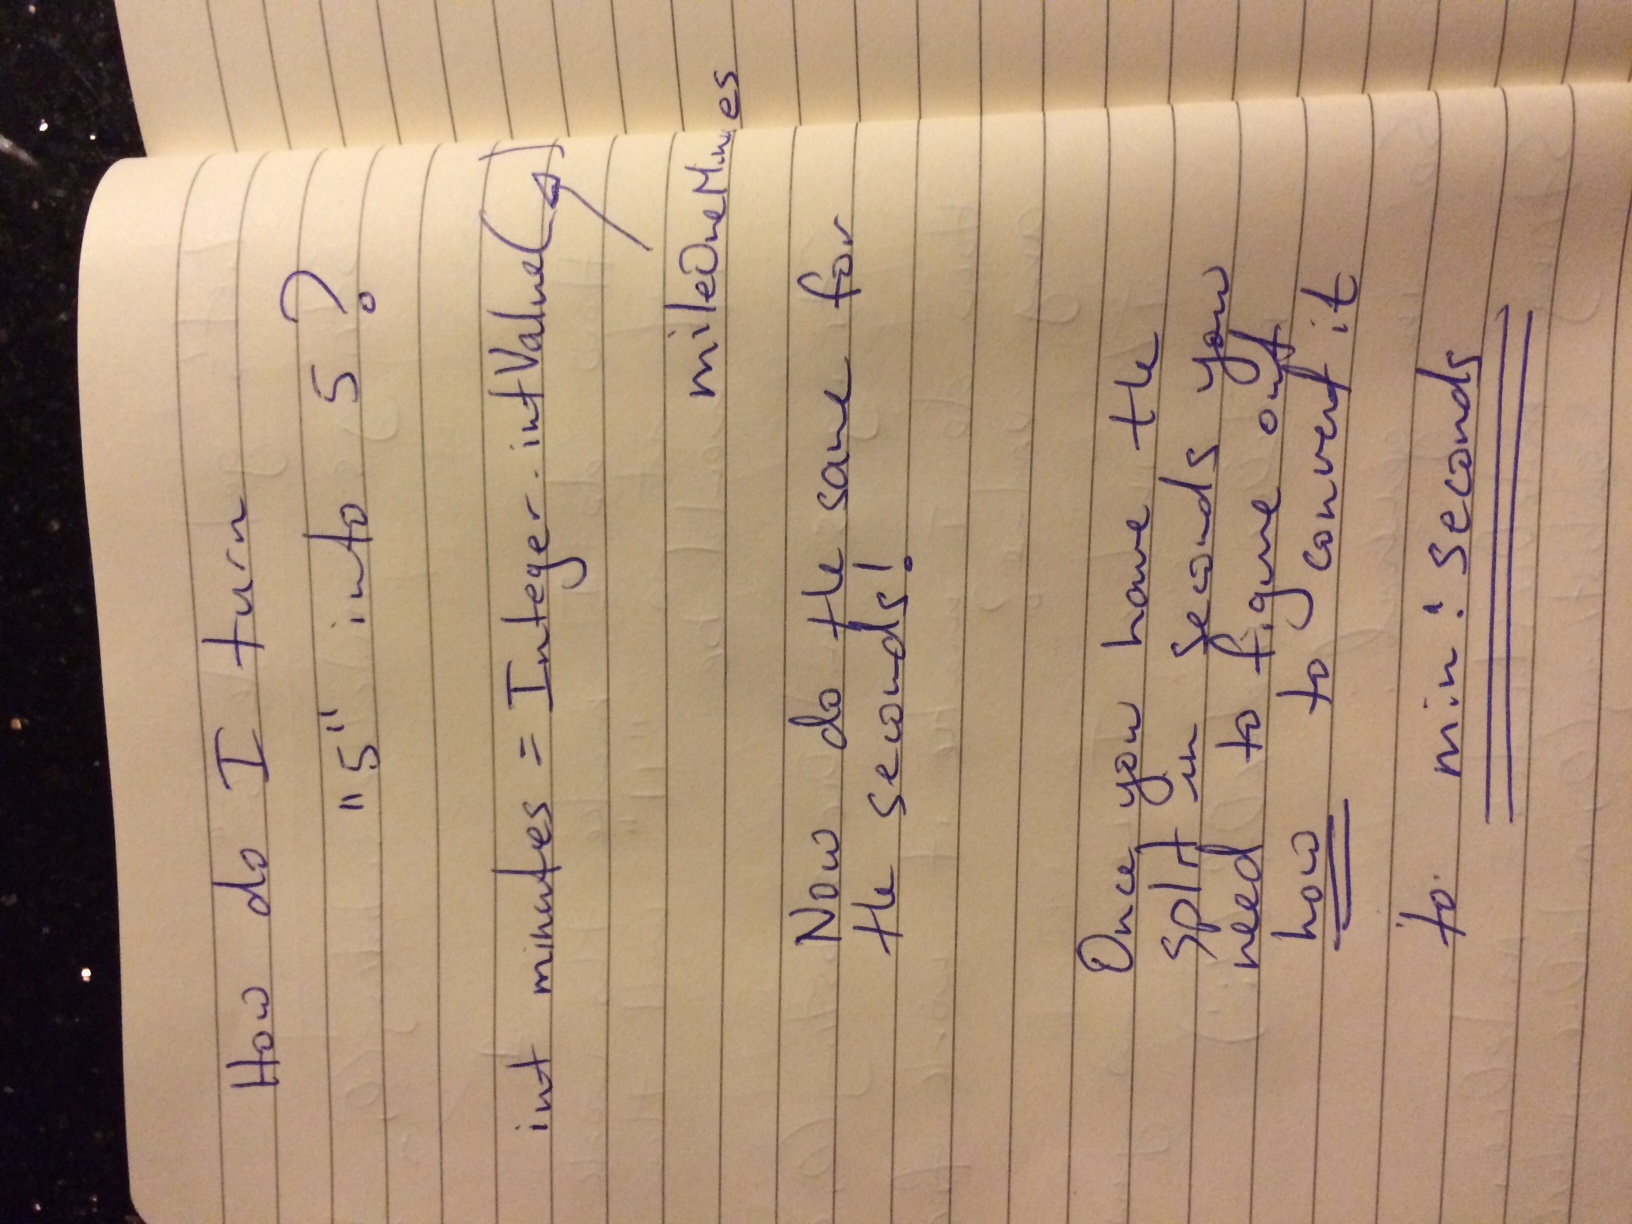 How do I turn
"5" into 5?
int minutes = Integer.intValue( )
mileOneMinutes
Now do the same for
the seconds!
Once you have the
split in seconds you
need to figure out
how to convert it
to min : seconds